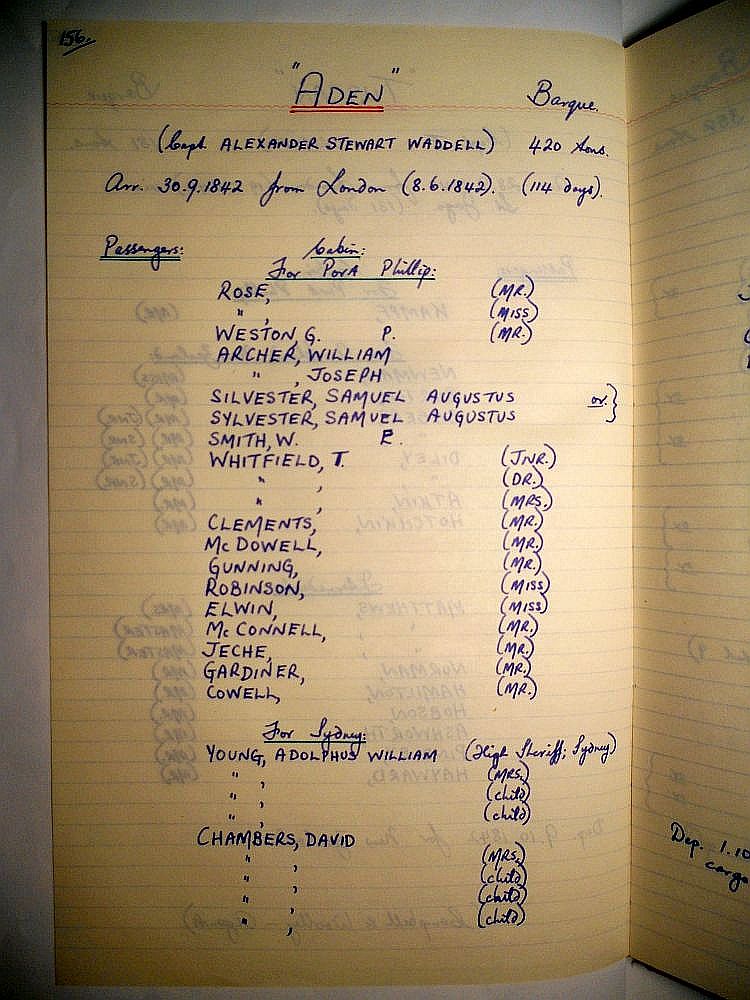 156.
"ADEN" Barque.
(Capt ALEXANDER STEWART WADDELL) 420 tons.
Arr. 30.9.1842 from London (8.6.1842). (114 days).
Passengers: Cabin:
For Port Phillip:
ROSE, (MR.)
" , (MISS)
WESTON, G. P. (MR.)
ARCHER, WILLIAM
" , JOSEPH
SILVESTER, SAMUEL AUGUSTUS or. }
SYLVESTER, SAMUEL AUGUSTUS
SMITH, W. E.
WHITFIELD, T. (JNR.)
" , (DR.)
" , (MRS.)
CLEMENTS, (MR.)
McDOWELL, (MR.)
GUNNING, (MR.)
ROBINSON, (MISS)
ELWIN, (MISS)
McCONNELL, (MR.)
JECHE, (MR.)
GARDINER, (MR.)
COWELL, (MR.)
For Sydney:
YOUNG, ADOLPHUS WILLIAM (High Sheriff; Sydney)
" , (MRS.)
" , (child)
" , (child)
CHAMBERS, DAVID
" , (MRS.)
" , (child)
" , (child)
" , (child)
Dep. 1.10
cargo